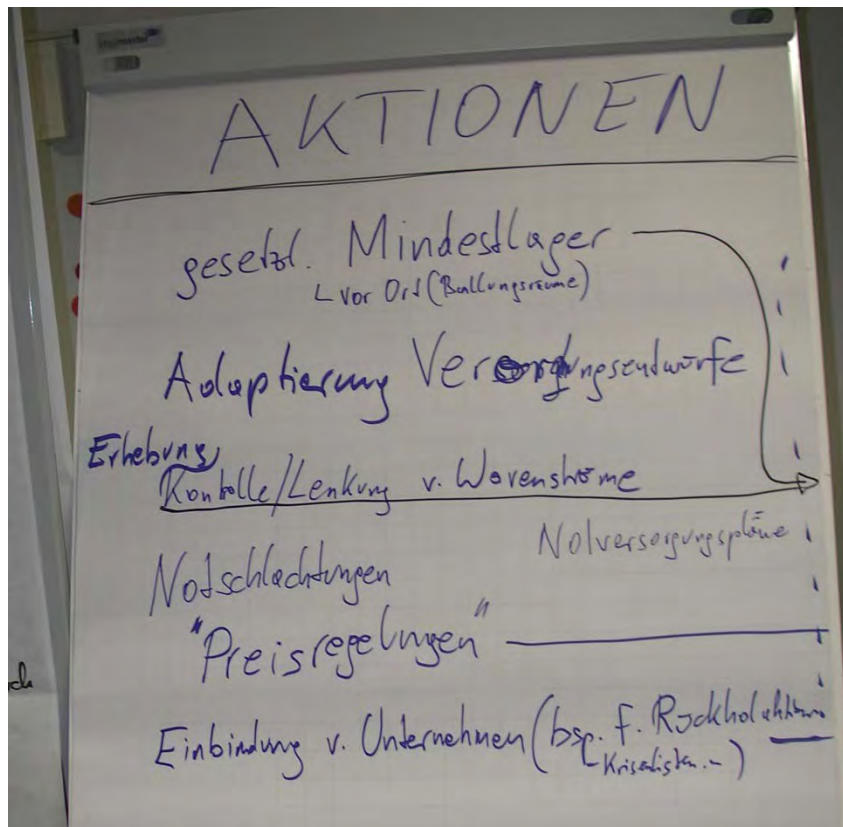 AKTIONEN
gesetzl. Mindestlager
vor Ort (Ballungsräume)
Adaptierung Versorgungsentwürfe
Erhebung
Kontolle/Lenkung v. Warenströme
Notversorgungspläne
Notschlachtungen
"Preisregelungen"
Einbindung v. Unternehmen (bsp. f. Rückholaktionen
Krisenlisten..)